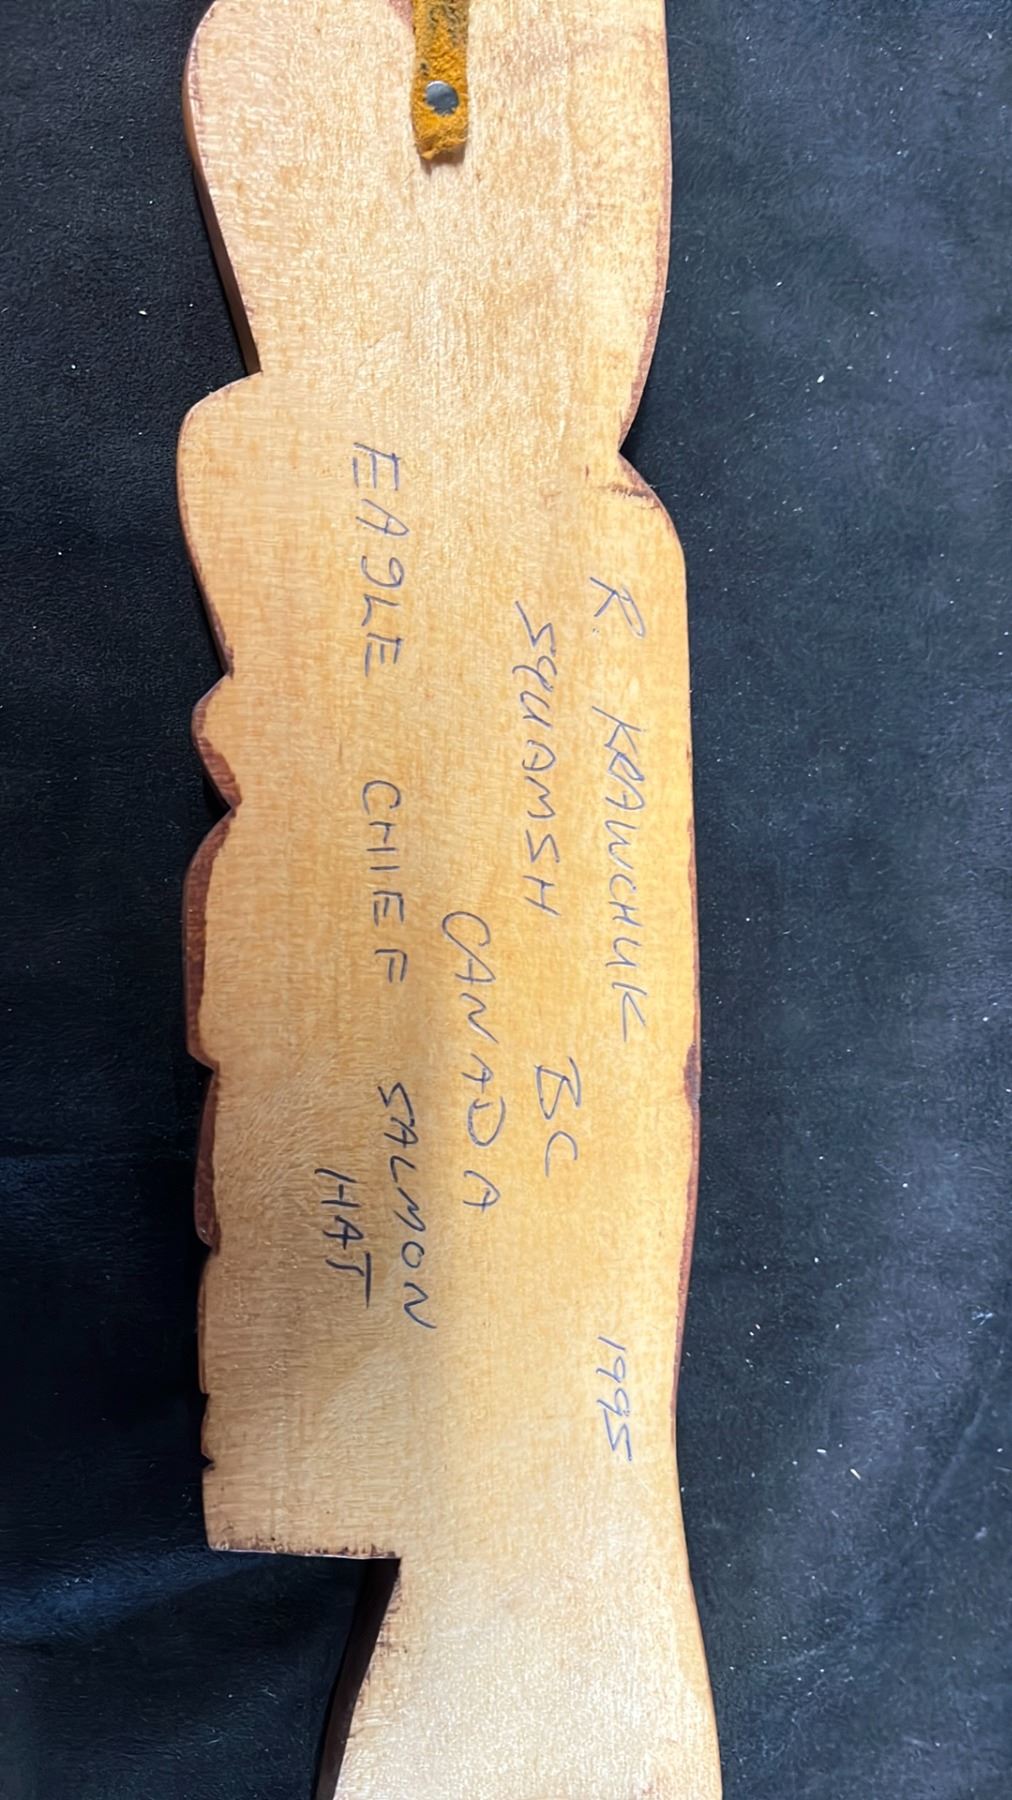 R. KRAWCHUK 1995
SQUAMSH BC
CANADA
EAGLE CHIEF SALMON
HAT